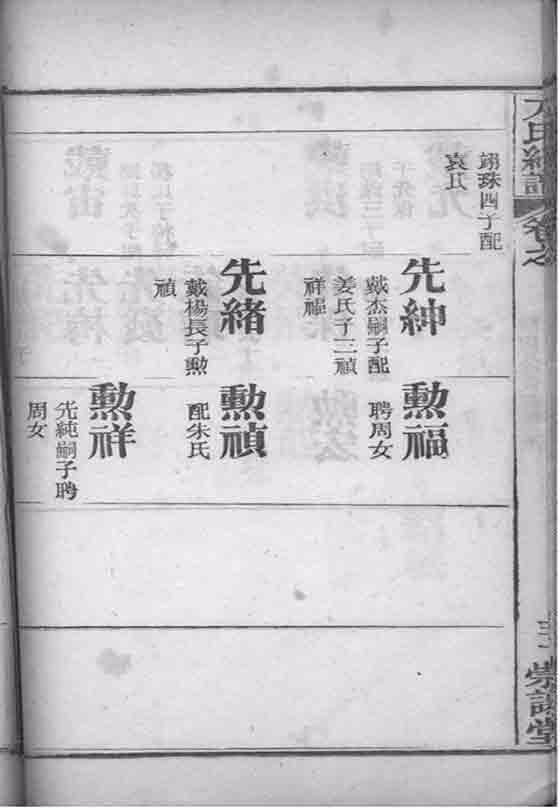 氏
卷之
翊珠四子配
袁氏
先紳
戴杰嗣子配
姜氏子三禎
祥福
先緒
戴楊長子勲
禎
勲福
聘周女
勲禎
配朱氏
勲祥
先純嗣子聘
周女
崇
堂